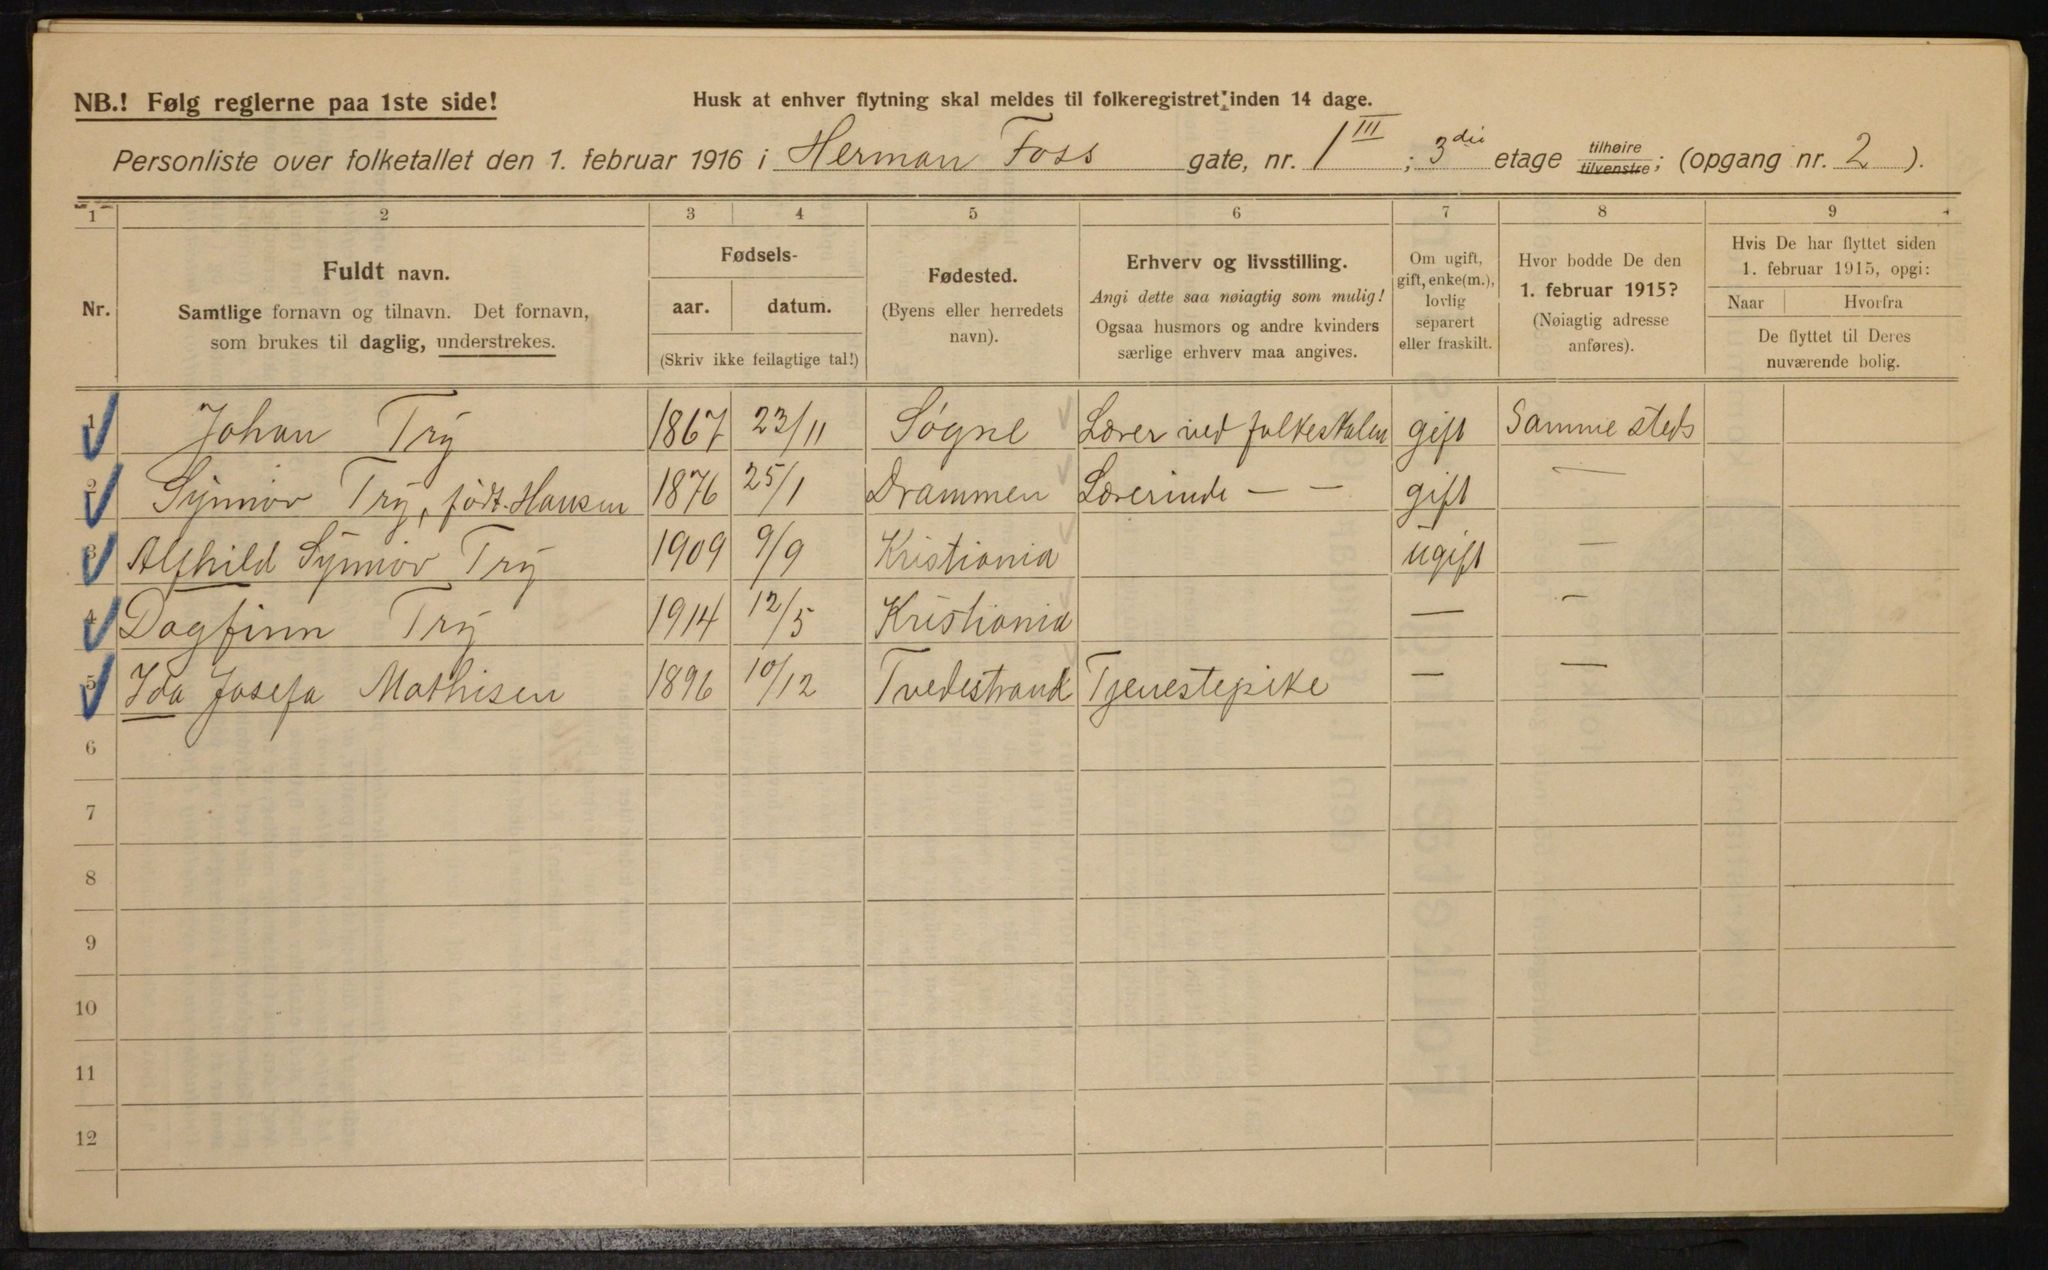 NB.! Følg reglerne paa 1ste side!
Husk at enhver flytning skal meldes til folkeregistret inden 14 dage.
Personliste over folketallet den 1. februar 1916 i Herman Foss gate, nr. 1 III; 3die etage tilhøire tilvenstre; (opgang nr. 2).
1 2 3 4 5 6 7 8 9
Nr.
Fuldt navn.
Samtlige fornavn og tilnavn. Det fornavn,
som brukes til daglig, understrekes.
Fødsels-
aar. datum.
(Skriv ikke feilagtige tal!)
Fødested.
(Byens eller herredets
navn).
Erhverv og livsstilling.
Angi dette saa nøiagtig som mulig!
Ogsaa husmors og andre kvinders
særlige erhverv maa angives.
Om ugift,
gift, enke(m.),
lovlig
separert
eller fraskilt.
Hvor bodde De den
1. februar 1915?
(Nøiagtig adresse
anføres).
Hvis De har flyttet siden
1. februar 1915, opgi:
Naar Hvorfra
De flyttet til Deres
nuværende bolig.
1 Johan Try 1867 23/11 Søgne Lærer ved folkeskolen gift Samme steds
2 Synnöv Try, født Hansen 1876 25/1 Drammen Lærerinde — — gift —
3 Alfhild Synnöv Try 1909 9/9 Kristiania ugift —
4 Dagfinn Try 1914 12/5 Kristiania — —
5 Ida Josefa Mathisen 1896 10/12 Tvedestrand Tjenestepike — —
6
7
8
9
10
11
12